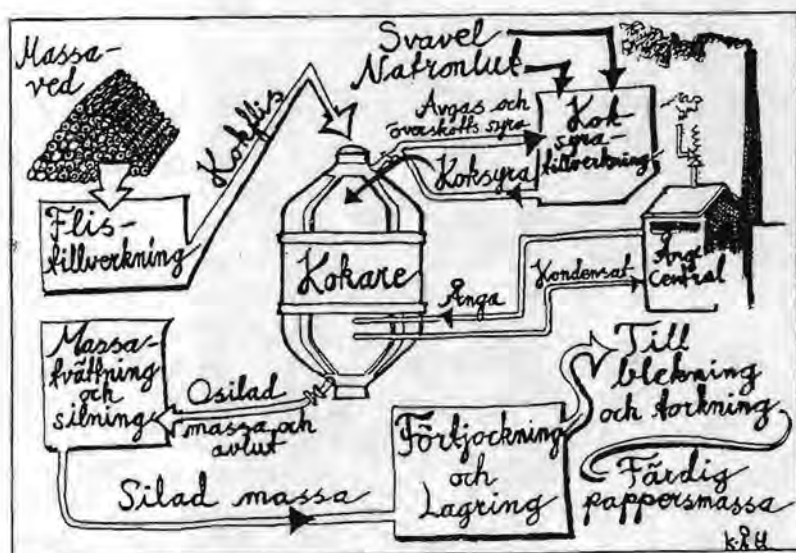 Massa-
ved
Flis-
tillverkning
Kokflis
Svavel
Natronlut
Avgas och
överskotts syra
Koksyra
Kok-
syra-
tillverkning
Kokare
Ånga
Kondensat
Ång-
Central
Massa-
tvättning
och
silning
Osilad
massa och
avlut
Silad massa
Förtjockning
och
Lagring
Till
blekning
och torkning
Färdig
pappersmassa
K.Å.H